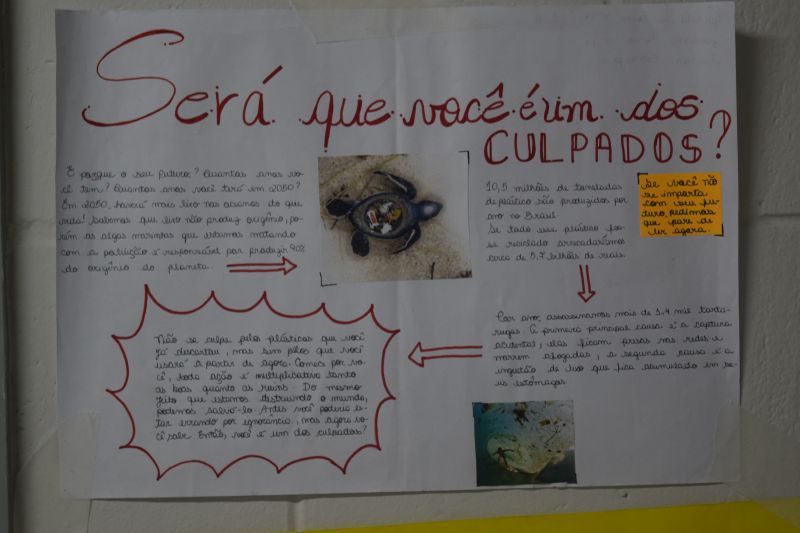 Será que você é um dos
CULPADOS?
É porque o seu futuro? Quantos anos vo-
cê tem? Quantos anos você terá em 2050?
Em 2050, haverá mais lixo nos oceanos do que
vida! Sabemos que lixo não produz oxigênio, po-
rém as algas marinhas que estamos matando
com a poluição é responsável por produzir 90%
do oxigênio do planeta.
10,5 milhões de toneladas
de plástico são produzidos por
ano no Brasil
Se todo esse plástico fos-
se reciclado arrecadaríamos
cerca de 5,7 bilhões de reais.
Se você não
se importa
com seu fu-
turo, pedimos
que pare de
ler agora.
Por ano, assassinamos mais de 1.4 mil tarta-
rugas. A primeira principal causa é a captura
acidental, elas ficam presas nas redes e
morrem afogadas, a segunda causa é a
ingestão de lixo que fica acumulado em se-
us estômagos
Não se culpe pelos plásticos que você
já descartou, mas sim pelos que você
usará a partir de agora. Comece por vo-
cê, toda ação é multiplicativa tanto
as boas quanto as ruins. Do mesmo
jeito que estamos destruindo o mundo,
podemos salvá-lo. Antes você poderia es-
tar errando por ignorância, mas agora vo-
cê sabe. Então, você é um dos culpados?